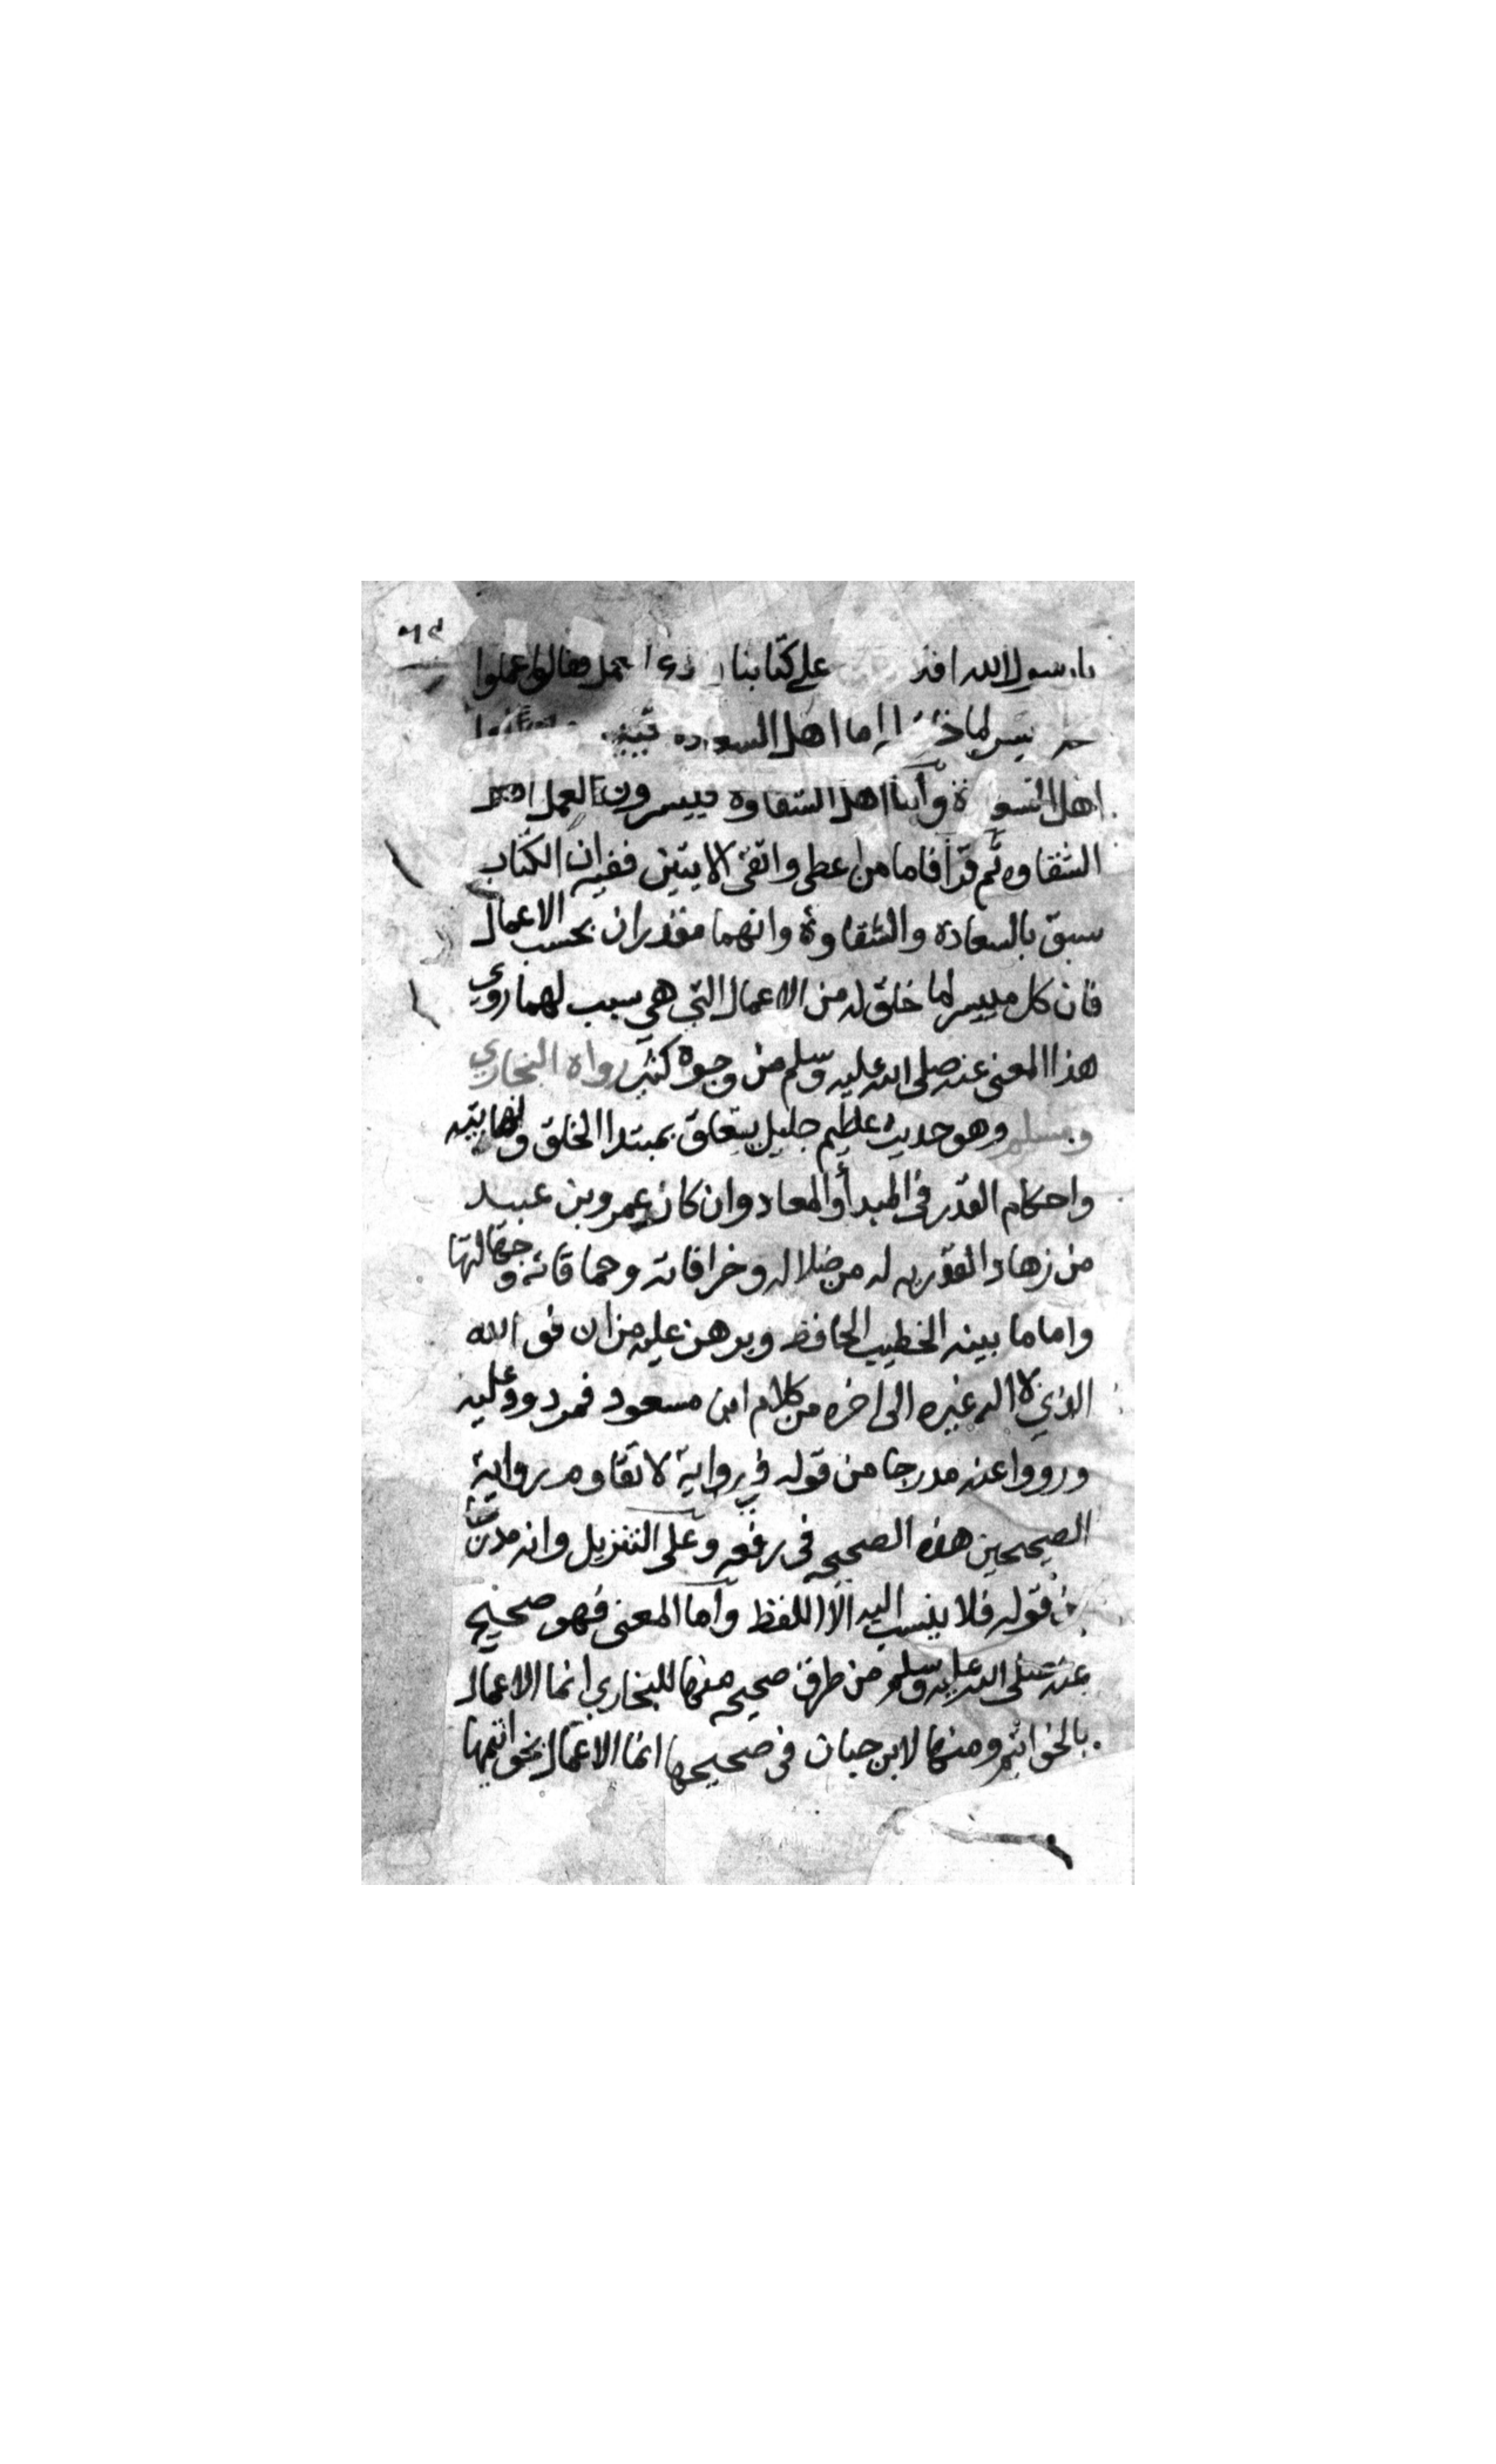 ٩٤
يا رسول الله افلا على كتابنا وندع العمل فقال اعملوا
يسر لما اما اهل السعادة
اهل السعادة واما اهل الشقاوة فييسرون لعمل اهل
الشقاوه ثم قرأ فاما من اعطى واتقى الايتين ففيه ان الكتاب
سبق بالسعادة والشقاوة وانهما مقدران بحسب الاعمال
فان كل ميسر لما خلق له من الاعمال التي هي سبب لهما روي
هذا المعنى عنه صلى الله عليه وسلم من وجوه كثيره رواه البخاري
ومسلم وهو حديث عظيم جليل يتعلق بمبتدا الخلق ونهايته
واحكام القدر في المبدأ والمعاد وان كان عمرو بن عبيد
من زهاد القدريه له من ضلاله وخرافاته وحماقاته
واما ما بينه الخطيب الحافظ وبرهن عليه من ان فو الله
الذي لا اله غيره الى اخره من كلام ابن مسعود فمردود عليه
ورووا عنه مدرجا من قوله في رواية لا تقاوم رواية
الصحيحين هذه الصحيحه في رفعه وعلى التنزيل وانه مدرج
من قوله فلا ينسب اليه الا اللفظ واما المعنى فهو صحيح
عنه صلى الله عليه وسلم من طرق صحيحه منها للبخاري انما الاعمال
بالخواتيم ومنها لابن حبان في صحيحها انما الاعمال بخواتيمها